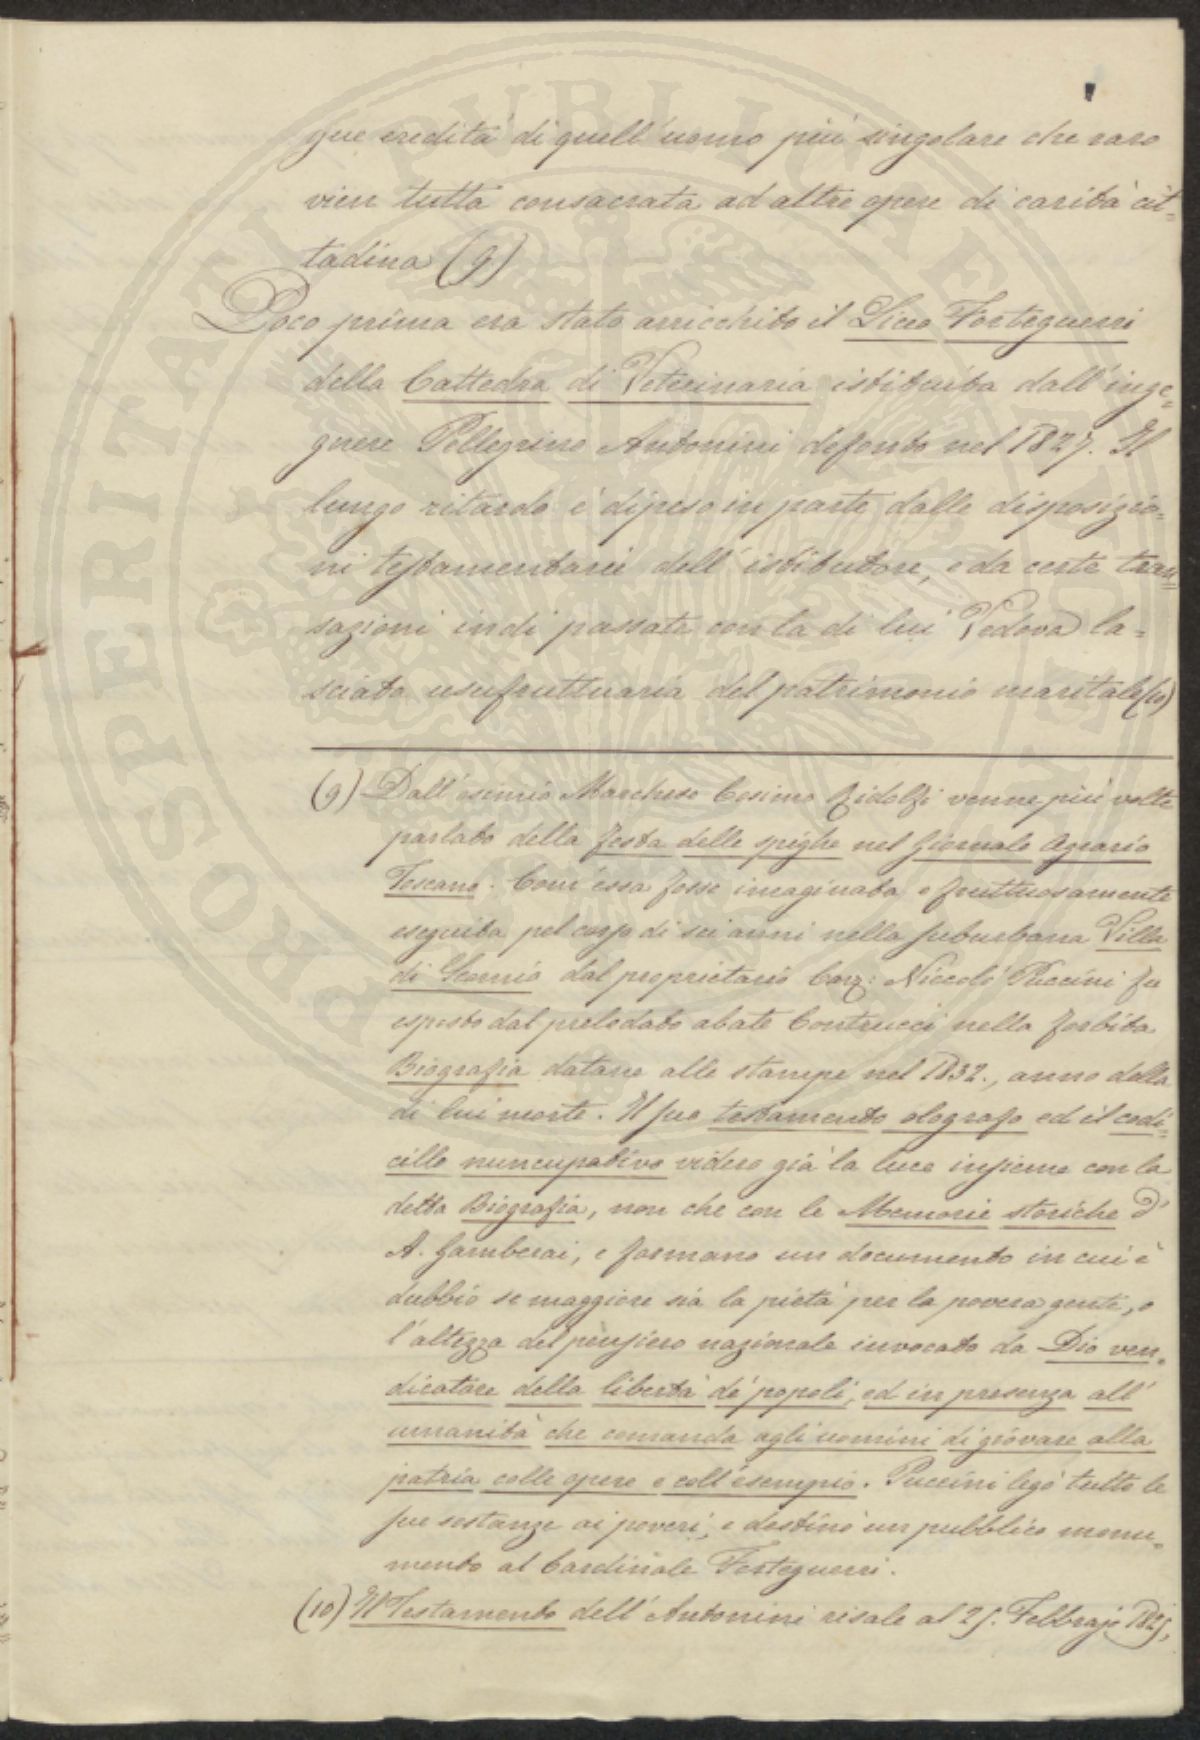 gue eredità di quell'uomo più singolare che raro
vien tutta consacrata ad altre opere di carità cit=
tadina (9)
Poco prima era stato arricchito il Liceo Forteguerri
della Cattedra di Veterinaria istituita dall'inge=
gnere Pellegrino Antonini defonto nel 1827. Il
lungo ritardo è dipeso in parte dalle disposizio=
ni testamentarie dell'istitutore, e da certe tran=
sazioni indi passate con la di lui Vedova la=
sciata usufruttuaria del patrimonio maritale (10)
(9) Dall'esimio Marchese Cosimo Ridolfi venne più volte
parlato della festa delle spighe nel Giornale Agrario
Toscano. Com'essa fosse imaginata e fruttuosamente
eseguita pel corso di sei anni nella suburbana Villa
di Scornio dal proprietario Cav: Niccolò Puccini fu
esposto dal prelodato abate Contrucci nella forbita
Biografia datane alle stampe nel 1852., anno della
di lui morte. Il suo testamento olografo ed il codi=
cillo nuncupativo videro già la luce insieme con la
detta Biografia, non che con le Memorie storiche d'
A. Gamberai, e formano un documento in cui è
dubbio se maggiore sia la pietà per la povera gente, o
l'altezza del pensiero nazionale invocato da Dio ven=
dicatore della libertà de' popoli, ed in presenza all'
umanità che comanda agli uomini di giovare alla
patria colle opere e coll'esempio. Puccini legò tutte le
sue sostanze ai poveri, e destinò un pubblico monu=
mento al Cardinale Forteguerri.
(10) Il Testamento dell'Antonini risale al 25. Febbrajo 1825,
PROSPERITATI PUBLICAE AUGENDAE